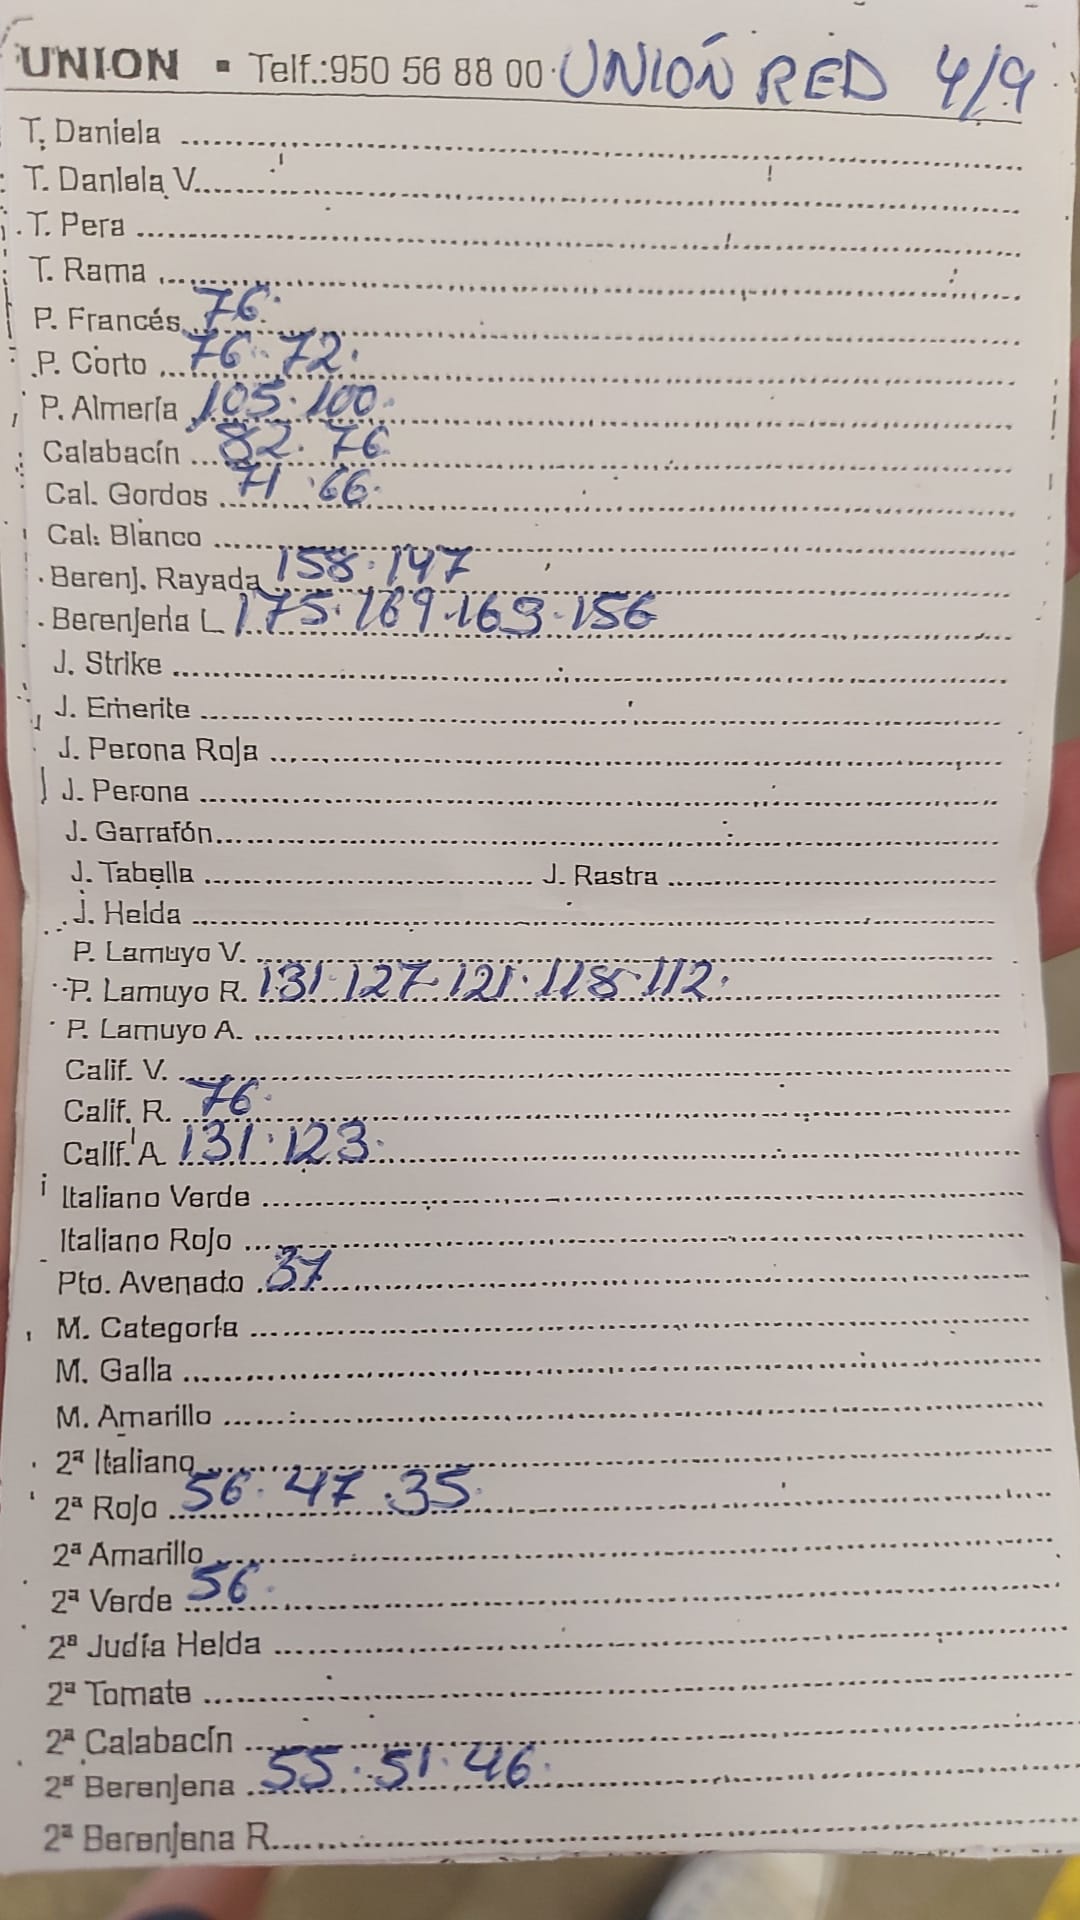 UNION ▪ Telf.:950 56 88 00 UNIÓN RED 4/9
T. Daniela
T. Daniela V.
T. Pera
T. Rama
P. Francés 76.
P. Corto 76. 72.
P. Almería 105. 100.
Calabacín 82. 76
Cal. Gordos 71. 66.
Cal. Blanco
Berenj. Rayada 158. 147
Berenjena L 175. 169. 163. 156
J. Strike
J. Emerite
J. Perona Roja
J. Perona
J. Garrafón
J. Tabella J. Rastra
J. Helda
P. Lamuyo V.
P. Lamuyo R. 131. 127. 121. 118. 112.
P. Lamuyo A.
Calif. V.
Calif. R. 76.
Calif. A 131. 123.
Italiano Verde
Italiano Rojo
Pto. Avenado 37
M. Categoría
M. Galla
M. Amarillo
2ª Italiano
2ª Rojo 56. 47. 35.
2ª Amarillo
2ª Verde 56.
2ª Judía Helda
2ª Tomate
2ª Calabacín
2ª Berenjena 55. 51. 46.
2ª Berenjena R.